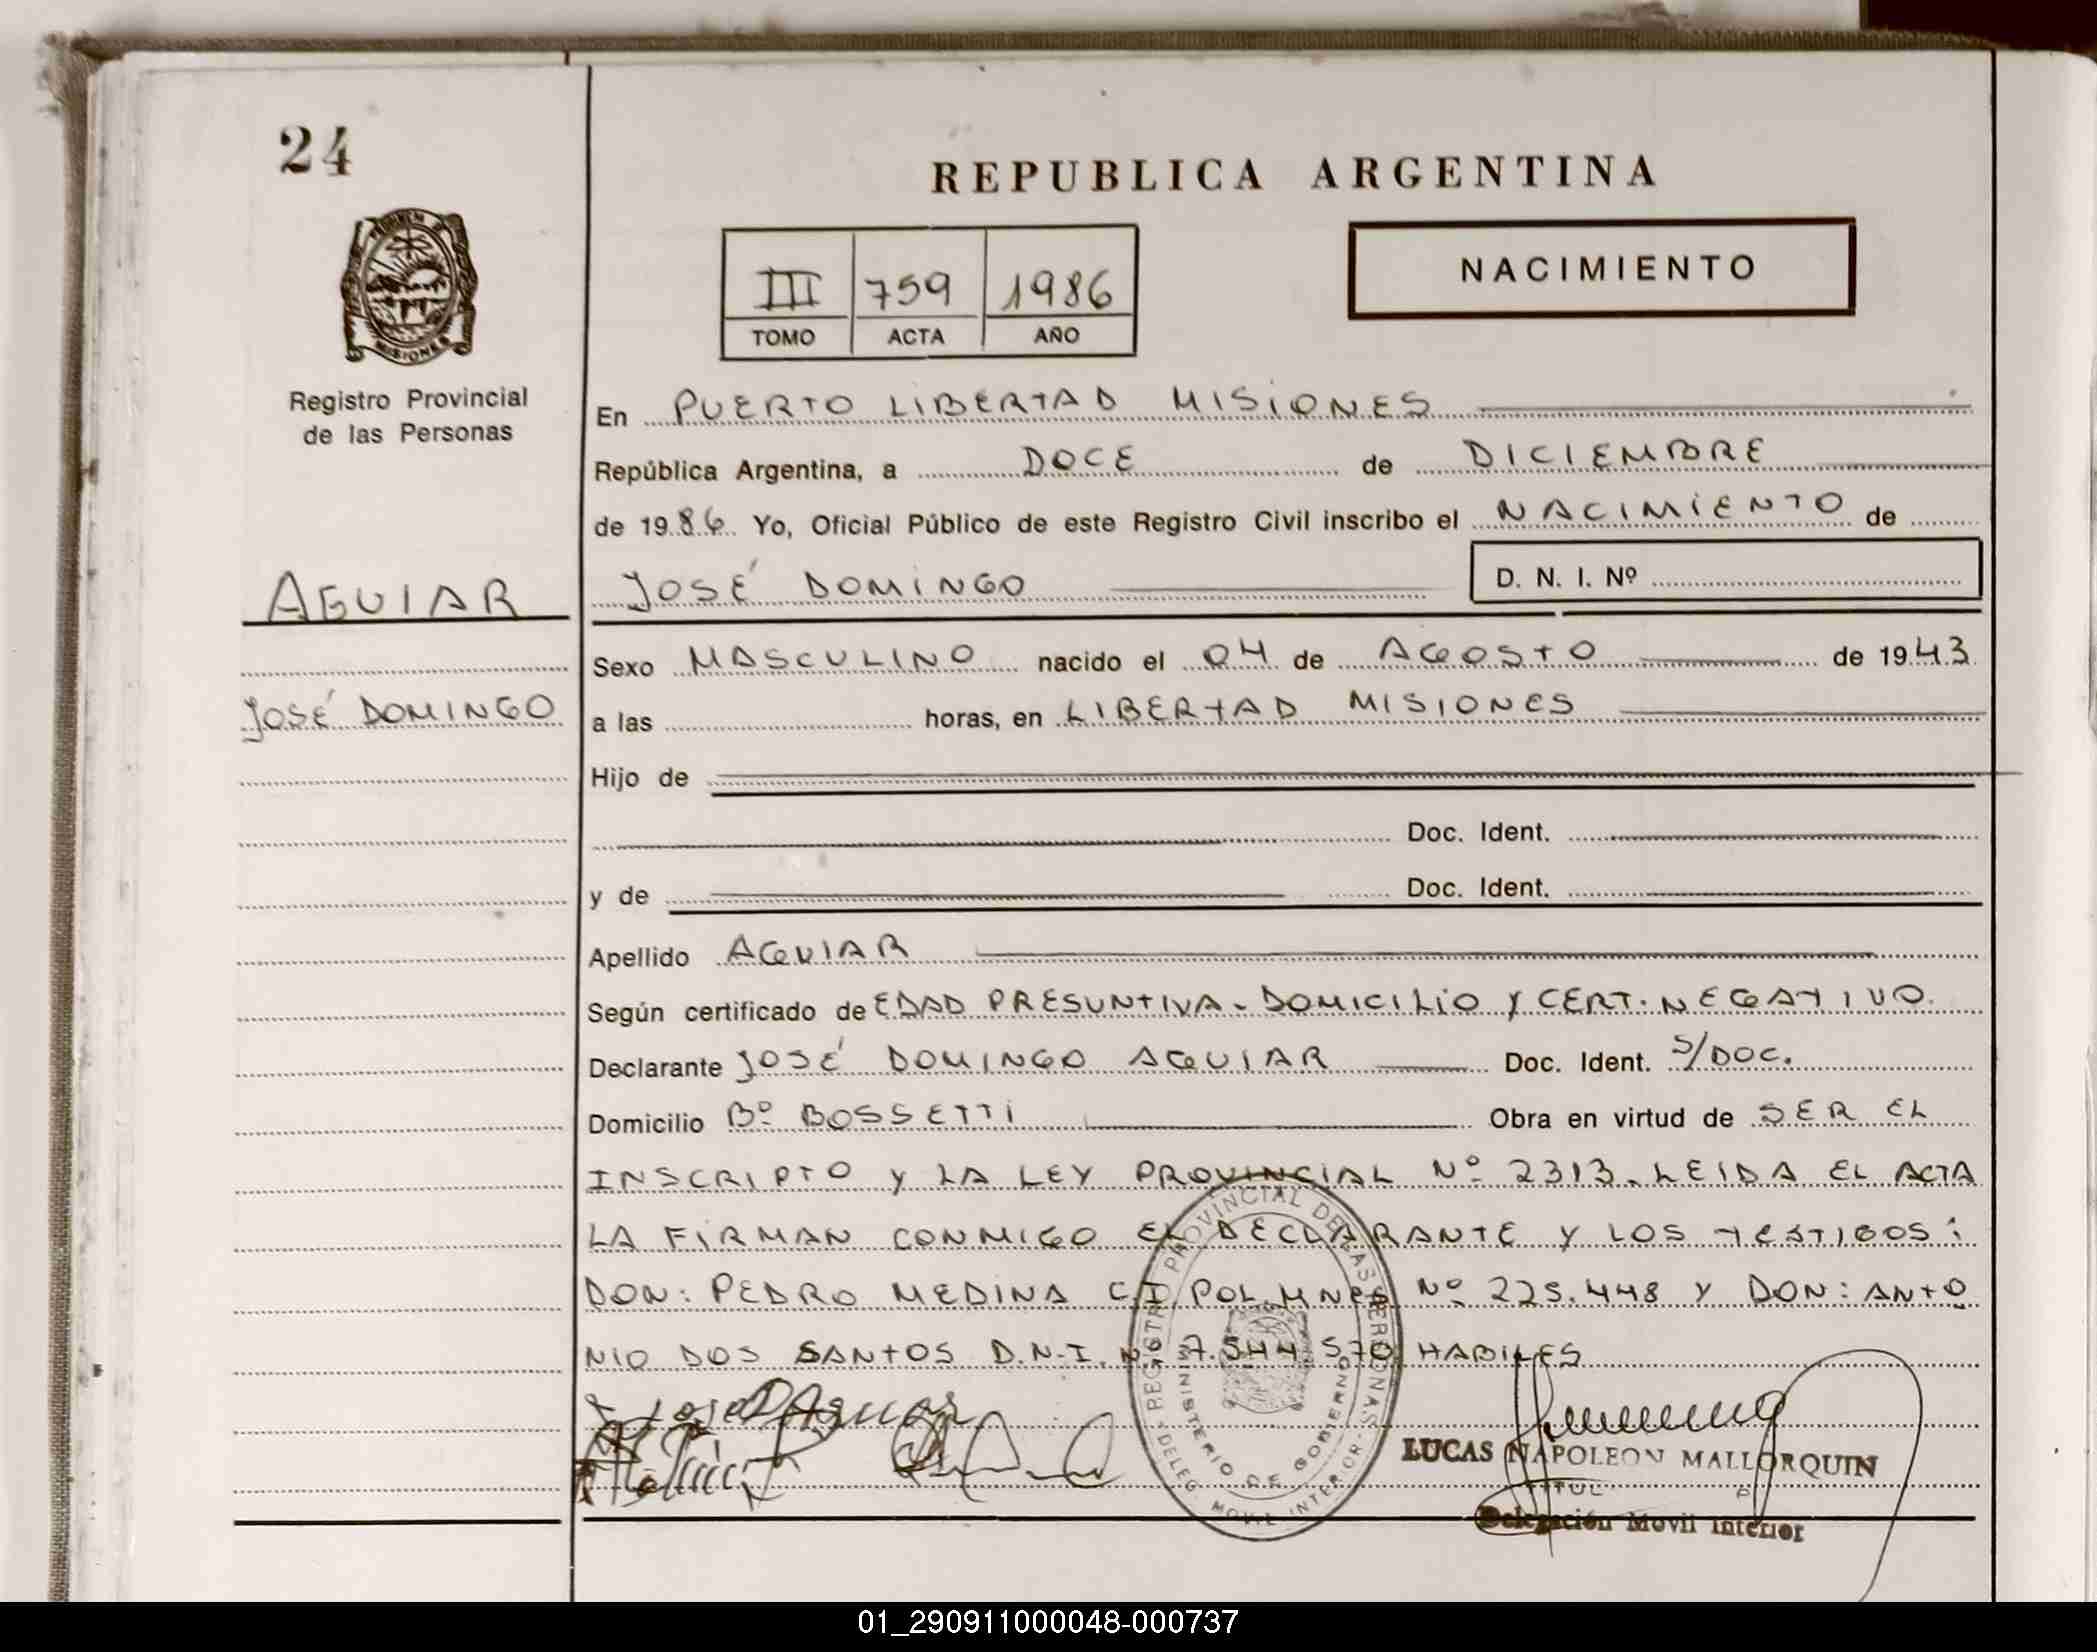 24
REPUBLICA ARGENTINA
MISIONES
III 759 1986
TOMO ACTA AÑO
NACIMIENTO
Registro Provincial
de las Personas
En PUERTO LIBERTAD MISIONES
República Argentina, a DOCE de DICIEMBRE
de 1986. Yo, Oficial Público de este Registro Civil inscribo el NACIMIENTO de
AGUIAR
JOSÉ DOMINGO
D. N. I. Nº
Sexo MASCULINO nacido el 04 de AGOSTO de 1943
JOSÉ DOMINGO
a las horas, en LIBERTAD MISIONES
Hijo de
Doc. Ident.
y de Doc. Ident.
Apellido AGUIAR
Según certificado de EDAD PRESUNTIVA - DOMICILIO Y CERT. NEGATIVO.
Declarante JOSÉ DOMINGO AGUIAR Doc. Ident. S/DOC.
Domicilio Bº BOSSETTI Obra en virtud de SER EL
INSCRIPTO Y LA LEY PROVINCIAL Nº 2313. LEIDA EL ACTA
LA FIRMAN CONMIGO EL DECLARANTE Y LOS TESTIGOS:
DON: PEDRO MEDINA C.I. POL. MNES Nº 225.448 Y DON: ANTO
NIO DOS SANTOS D.N.I. Nº 7.544.570 HABILES
REGISTRO PROVINCIAL DE LAS PERSONAS
MINISTERIO DE GOBIERNO
DELEG. MOVIL INTERIOR
Jose D Aguiar
LUCAS NAPOLEON MALLORQUIN
Delegación Movil Interior
01_290911000048-000737